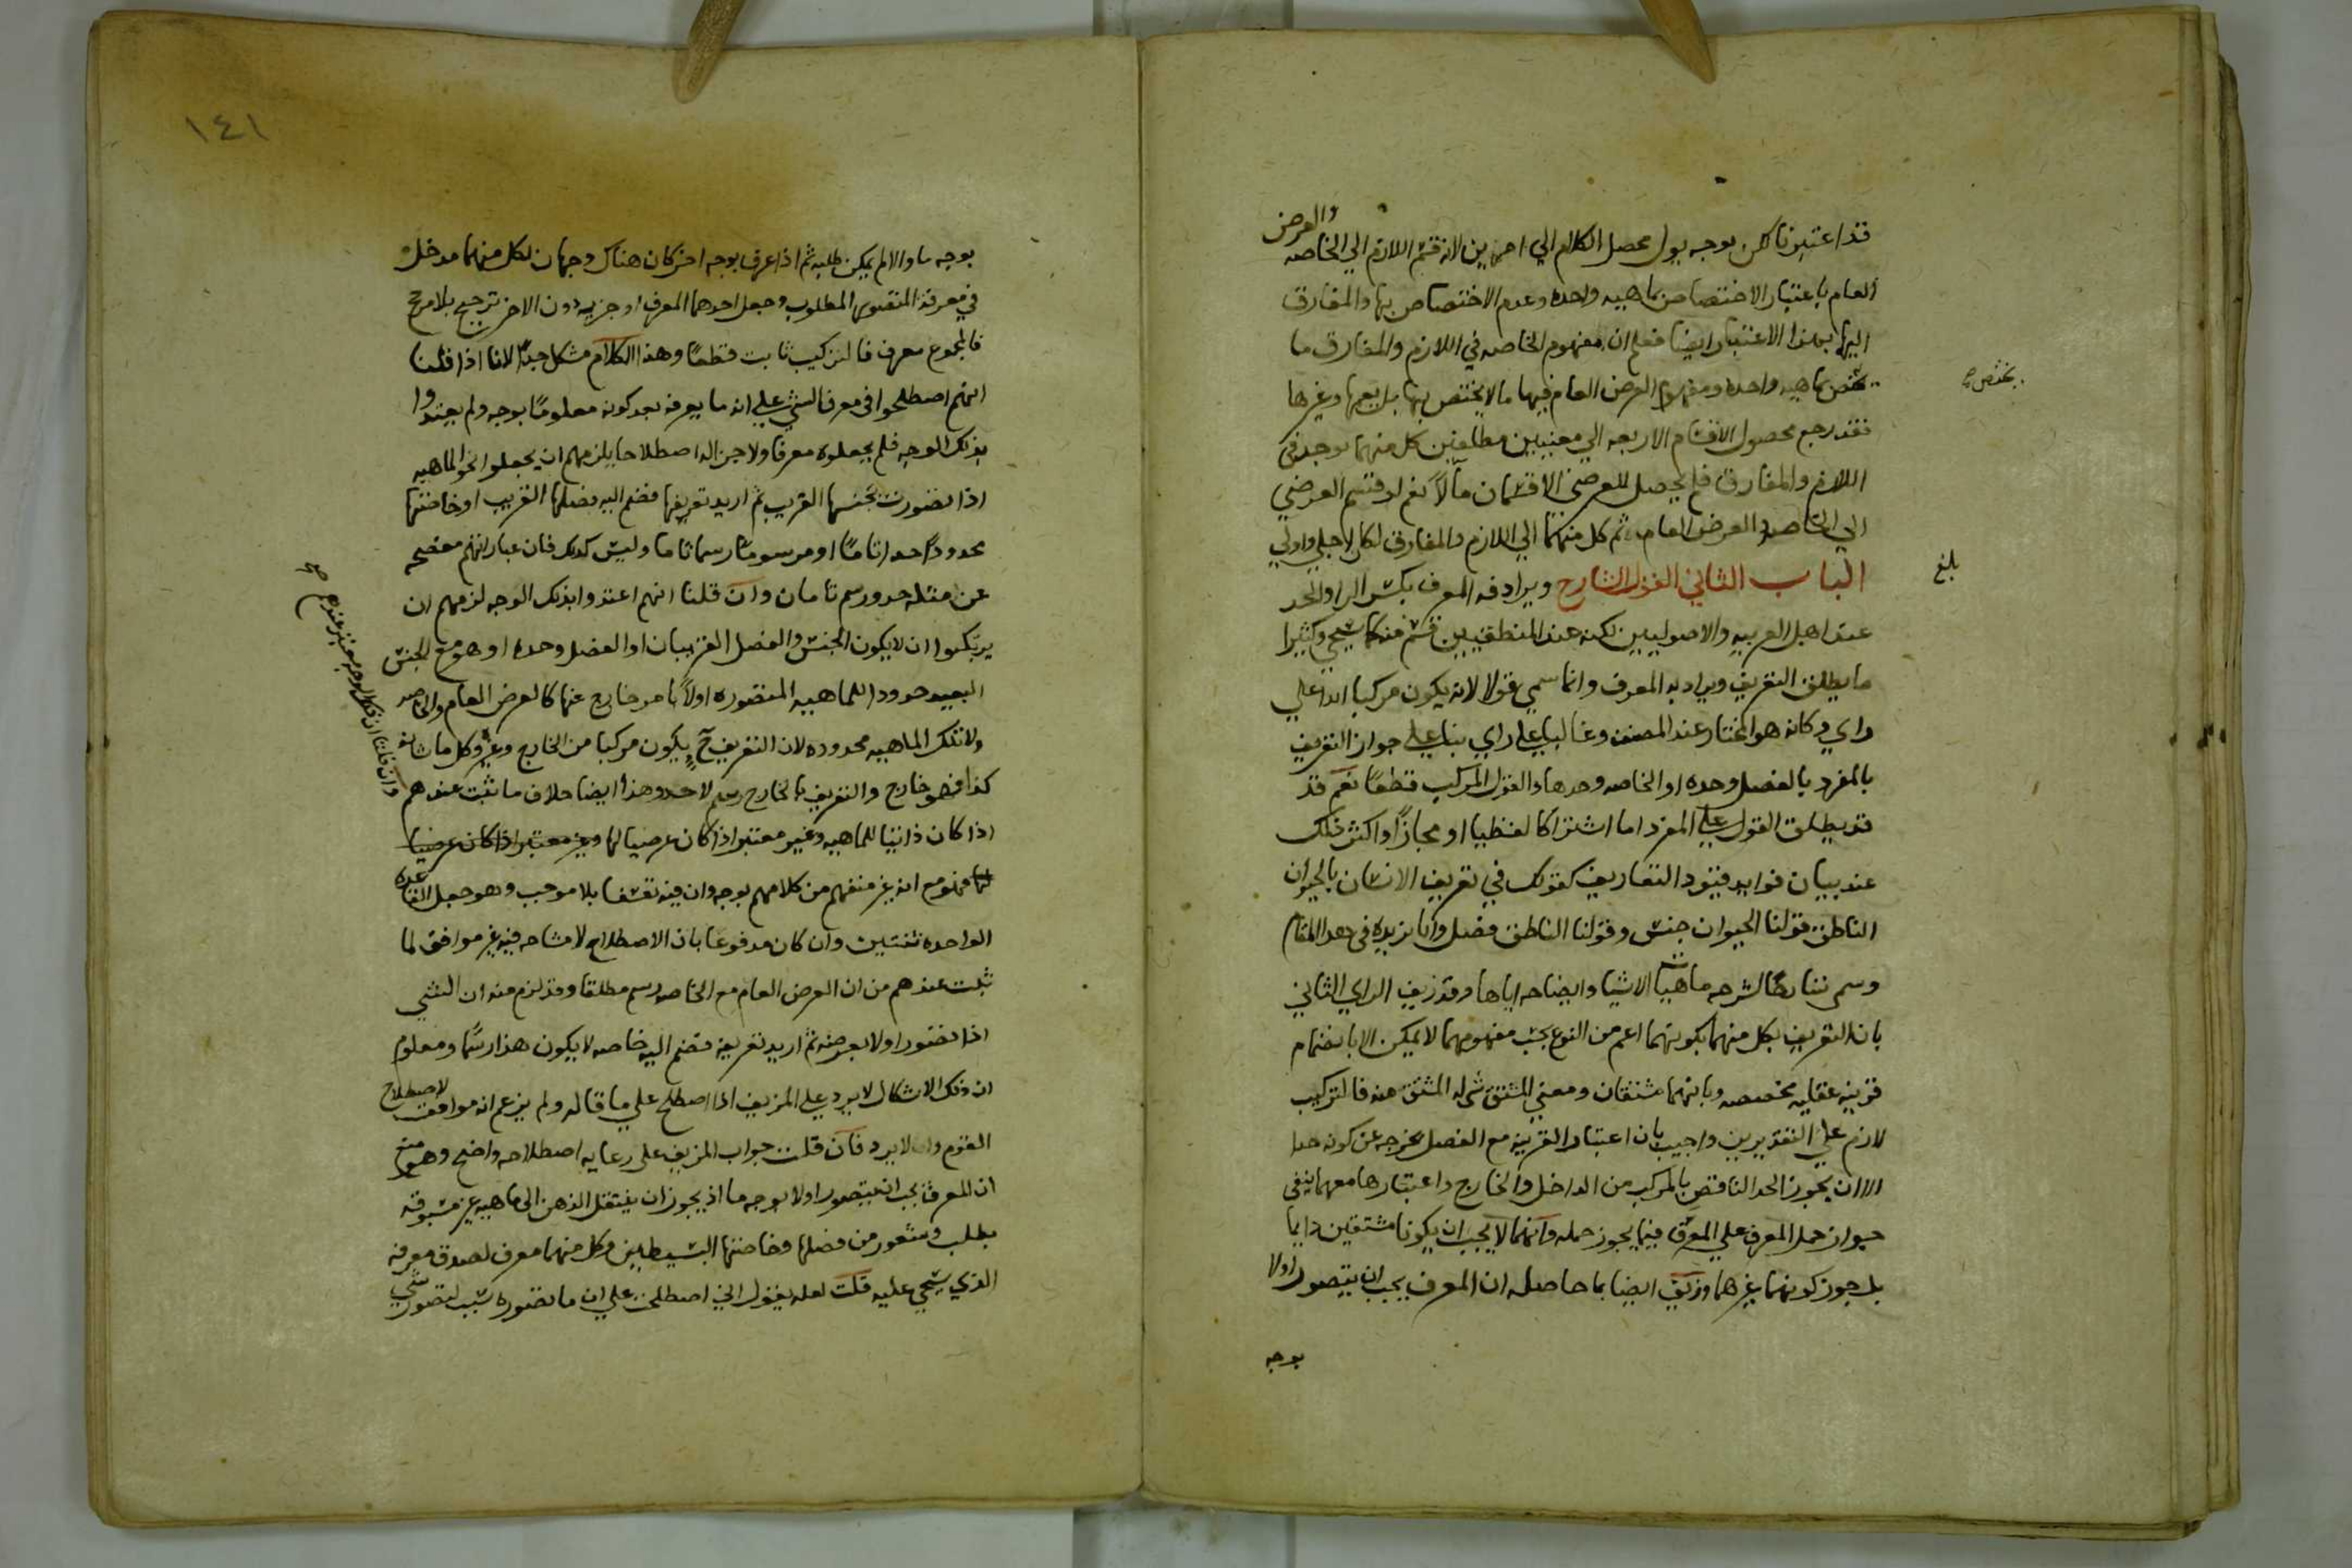 قد اعتبرنا لكن بوجه يول محصل الكلام الي اخر بين لانه قسم اللازم الي الخاصه والعرض
العام باعتبار الاختصاص بماهيه واحده وعدم الاختصاص بها والمفارق
اليها بهذا الاعتبار ايضا فعلم ان مفهوم الخاصه في اللازم والمفارق ما
يختص بماهيه واحده ومفهوم العرض العام فيهما ما لا يختص بها بل يعمها وغيرها
يختص صح
فقد رجع محصول الاقسام الاربعه الي معنيين مطلقين كل منهما يوجد في
اللازم والمفارق فلم يحصل للعرضي الا قسمان مآلاً نعم لو قسم العرضي
الي الخاصه والعرض العام ثم كل منهما الي اللازم والمفارق لكان اجلي واولي
بلغ
الباب الثاني القول الشارح ويرادفه المعرف بكسر الرا والحد
عند اهل العربيه والاصوليين لكنه عند المنطقيين قسم منه كما سيجي وكثيرا
ما يطلق التعريف ويراد به المعرف وانما سمي قولا لانه يكون مركبا ابدا علي
راي وكانه هو المختار عند المصنف وغالبا علي راي بنا علي جواز التعريف
بالمفرد بالفصل وحده او الخاصه وحدها والقول المركب قطعا نعم قد
قد يطلق القول علي المفرد اما اشتراكا لفظيا او مجازاً واكثر ذلك
عند بيان فوايد قيود التعاريف كقولك في تعريف الانسان بالحيوان
الناطق قولنا الحيوان جنس وقولنا الناطق فصل وانا نزيده في هذا المقام
وسمي شارحا لشرحه ماهيات الاشيا وايضاحه اياها وقد زيف الراي الثاني
بان التعريف بكل منهما بكونهما اعم من النوع بحسب مفهومهما لا يمكن الا بانضمام
قرينه عقليه مخصصه وبانهما مشتقان ومعني المشتق شي له المشتق منه فالتركيب
لازم علي التقديرين واجيب بان اعتبار القرينه مع الفصل يخرجه عن كونه حدا
الا ان يجوز الحد الناقص بالمركب من الداخل والخارج واعتبارها معهما ينفي
جواز حمل المعرف علي المعرف فيما يجوز حمله وانهما لا يجب ان يكونا مشتقين دايما
بل يجوز كونهما غيرهما وزيف ايضا بما حاصله ان المعرف يجب ان يتصور اولا
بوجه
١٤١
بوجه ما والا لم يمكن طلبه ثم اذا عرف بوجه اخر كان هناك وجهان لكل منهما مدخل
في معرفة المتصور المطلوب وجعل احدهما المعرف او جزيه دون الاخر ترجيح بلا مرجح
فالمجموع معرف فالتركيب ثابت قطعًا وهذا الكلام مشكل جدًا لانا اذا قلنا
انهم اصطلحوا في معرف الشي علي انه ما يعرفه بعد كونه معلومًا بوجه ولم يعتدوا
بذلك الوجه فلم يجعلوه معرفا ولا جزاله اصطلاحا يلزمهم ان يجعلوا نحو الماهيه
اذا تصورت بجنسها القريب ثم اريد تعريفها فضم اليه فصلها القريب او خاصتها
محدودًا حدا تامًا او مرسومًا رسما تاما وليس كذلك فان عباراتهم مفصحه
عن مثله حد ورسم تامان وان قلنا انهم اعتدوا بذلك الوجه لزمهم ان
يرتكبوا ان لا يكون الجنس والفصل القريبان او الفصل وحده او هو مع الجنس
البعيد حدودا للماهيه المتصوره اولاً بامر خارج عنها كالعرض العام والخاصه
ولا تلك الماهيه محدوده لان التعريف ح يكون مركبا من الخارج وغيره وكل ما شانه
كذا فهو خارج والتعريف بالخارج رسم لا حد وهذا ايضا خلاف ما ثبت عندهم
وان قلنا ان ذلك الوجه معتبر عندهم صح
اذا كان ذاتيا للماهيه وغير معتبر اذا كان عرضيا لها وغير معتبر اذا كان عرضيا
لها فممنوع انه غير منفهم من كلامهم بوجه وان فيه تعسفا بلا موجب وهو جعل القاعده
الواحده ثنتين وان كان مدفوعا بان الاصطلاح لا مشاحه فيه غير موافق لما
ثبت عندهم من ان العرض العام مع الخاصه رسم مطلقا وقد لزم منه ان الشي
اذا تصور اولا بعرضه ثم اريد تعريفه فضم اليه خاصه لا يكون هذا رسمًا ومعلوم
ان ذلك الاشكال لا يرد علي المزيف اذا اصطلح علي ما قاله ولم يزعم انه موافق لاصطلاح
القوم والا لا يرد فان قلت جواب المزيف علي رعايه اصطلاحه واضح وهو منع
ان المعرف يجب ان يتصور اولا بوجه ما اذ يجوز ان ينتقل الذهن الي ماهيه غير مسبوقه
بطلب وشعور من فصلها وخاصتها البسيطين وكل منهما معرف لصدق معرفه
الذي سيجي عليه قلت لعله يقول اني اصطلحت علي ان ما تصوره سبب لتصور شي